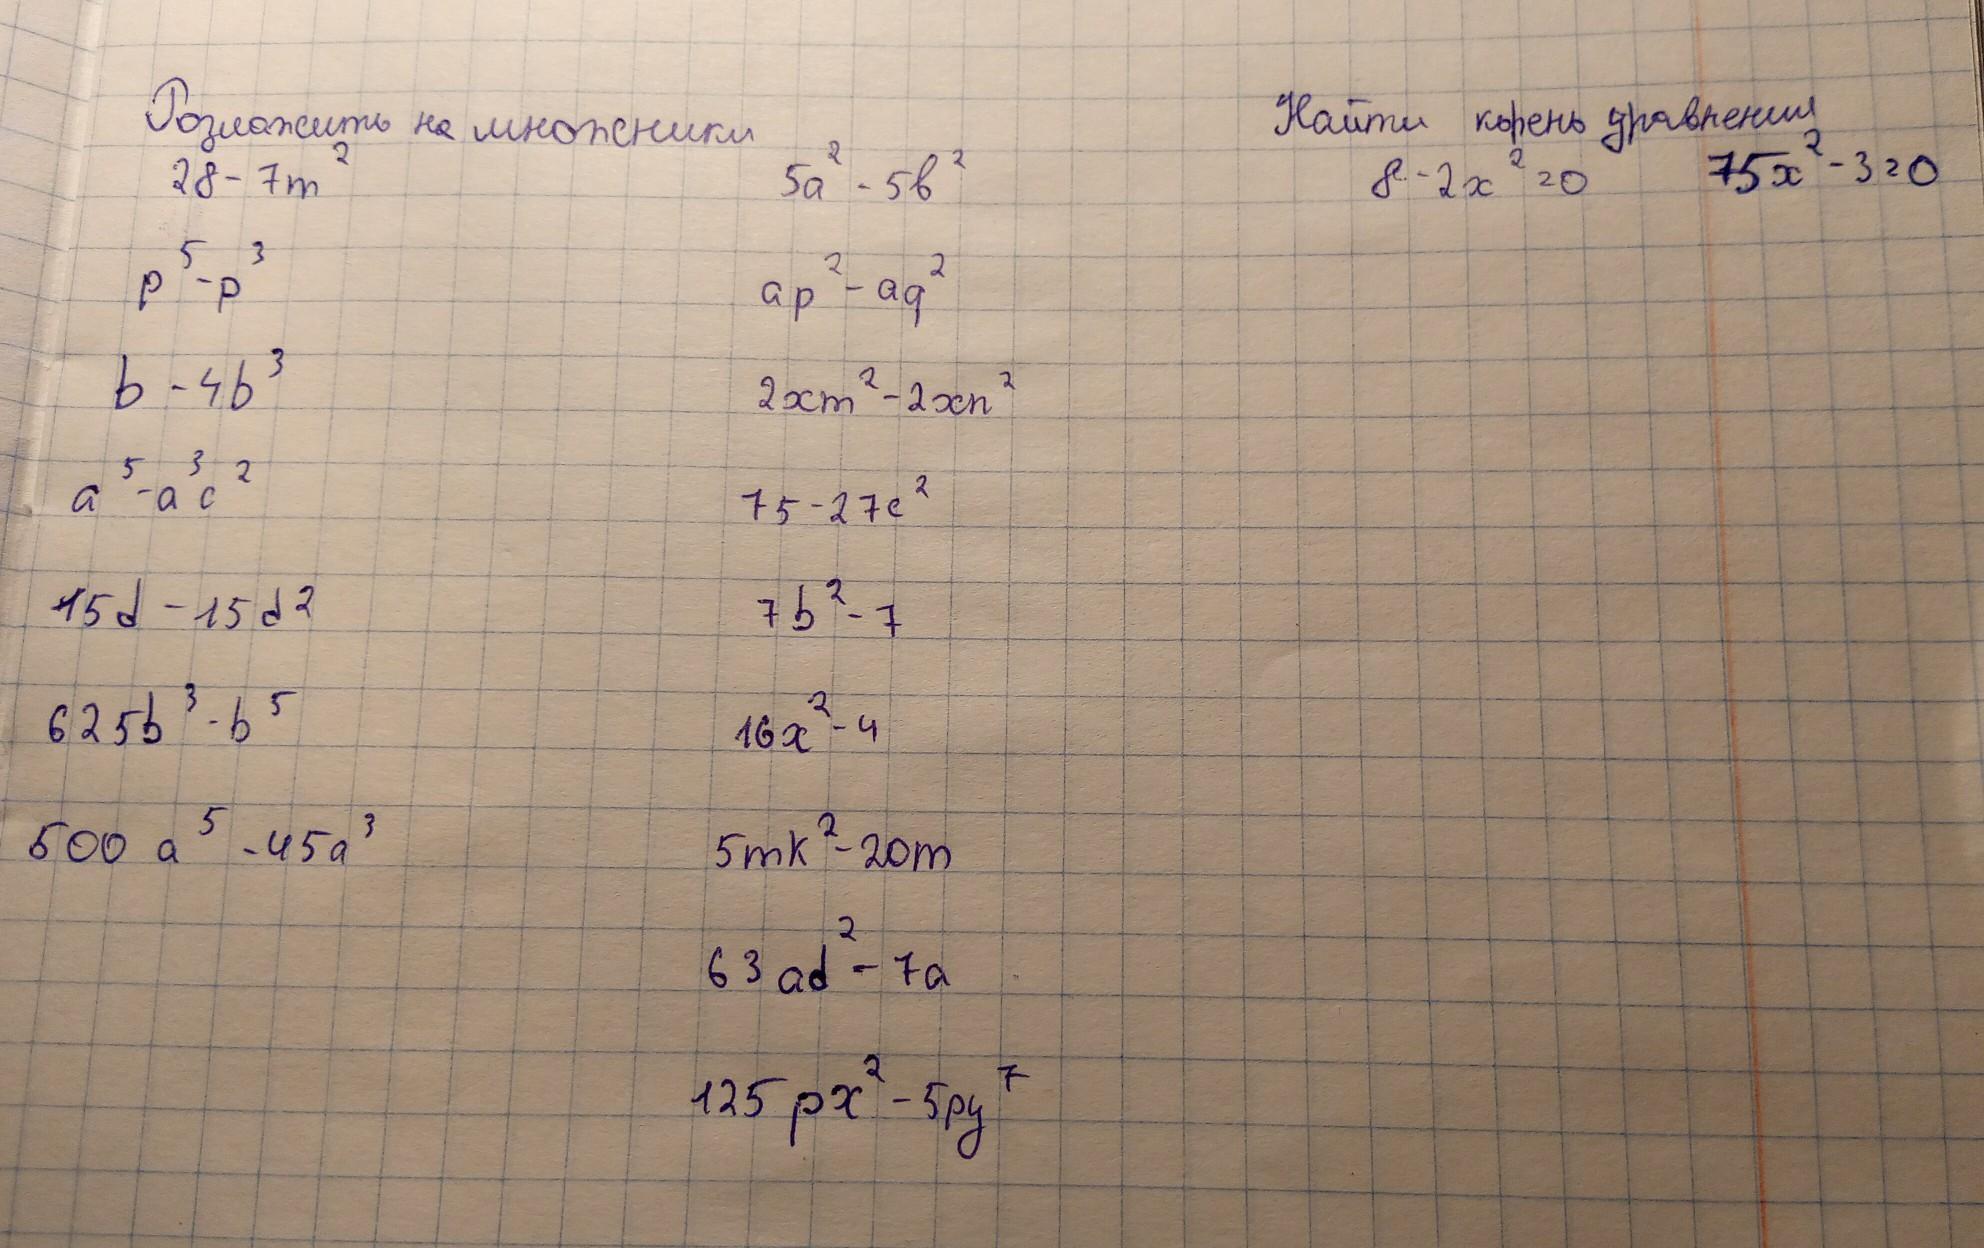 Розложить на множники
28 - 7m²
p⁵ - p³
b - 4b³
a⁵ - a³c²
15d - 15d²
625b³ - b⁵
500a⁵ - 45a³
5a² - 5b²
ap² - aq²
2xm² - 2xn²
75 - 27c²
7b² - 7
16x² - 4
5mk² - 20m
63ad² - 7a
125px² - 5py⁷
Найти корень уравнения
8 - 2x² = 0 75x² - 3 = 0